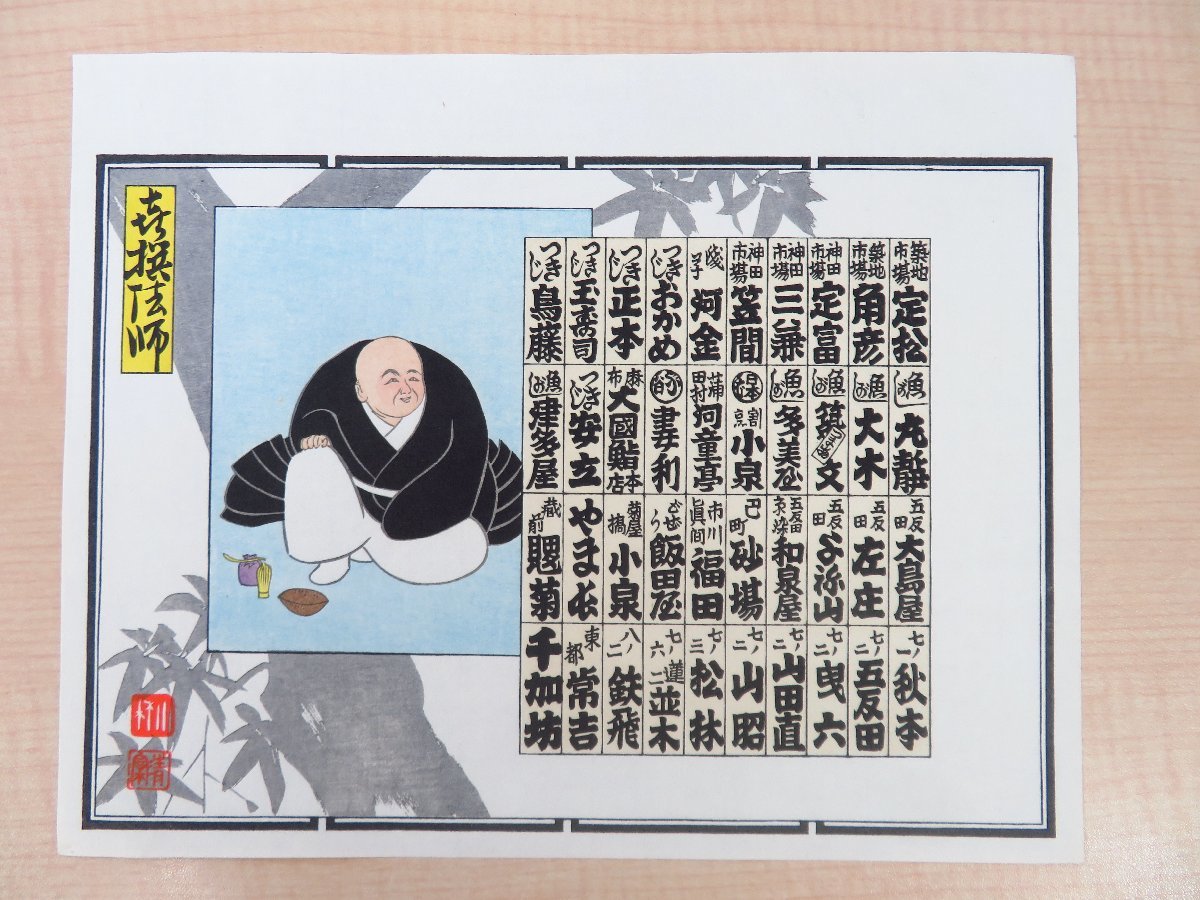 喜撰法師
築地市場 定松
築地市場 角彦
神田市場 定富
神田市場 三兼
神田市場 笠間
浅 河金
つきじ おかめ
つきじ 正本
つきじ 玉寿司
つきじ 鳥藤
魚がし 丸静
魚がし 大木
魚がし 築文
魚がし 多美屋
日本 割烹 小泉
蒲田 河童亭
妻利
麻布 大國鮨本店
つきじ 安立
魚がし 津多屋
五反田 大鳥屋
五反田 左庄
五反田 よね山
五反田 和泉屋
巴町 砂場
市川真間 福田
飯田屋
菊屋橋 小泉
やまよ
蔵前 菊
七ノ一 秋本
七ノ二 五反田
七ノ二 曳六
七ノ二 山田直
七ノ二 山昭
七ノ三 松林
七ノ六 二蓮 並木
八ノ二 鉄飛
東都 常吉
千加坊